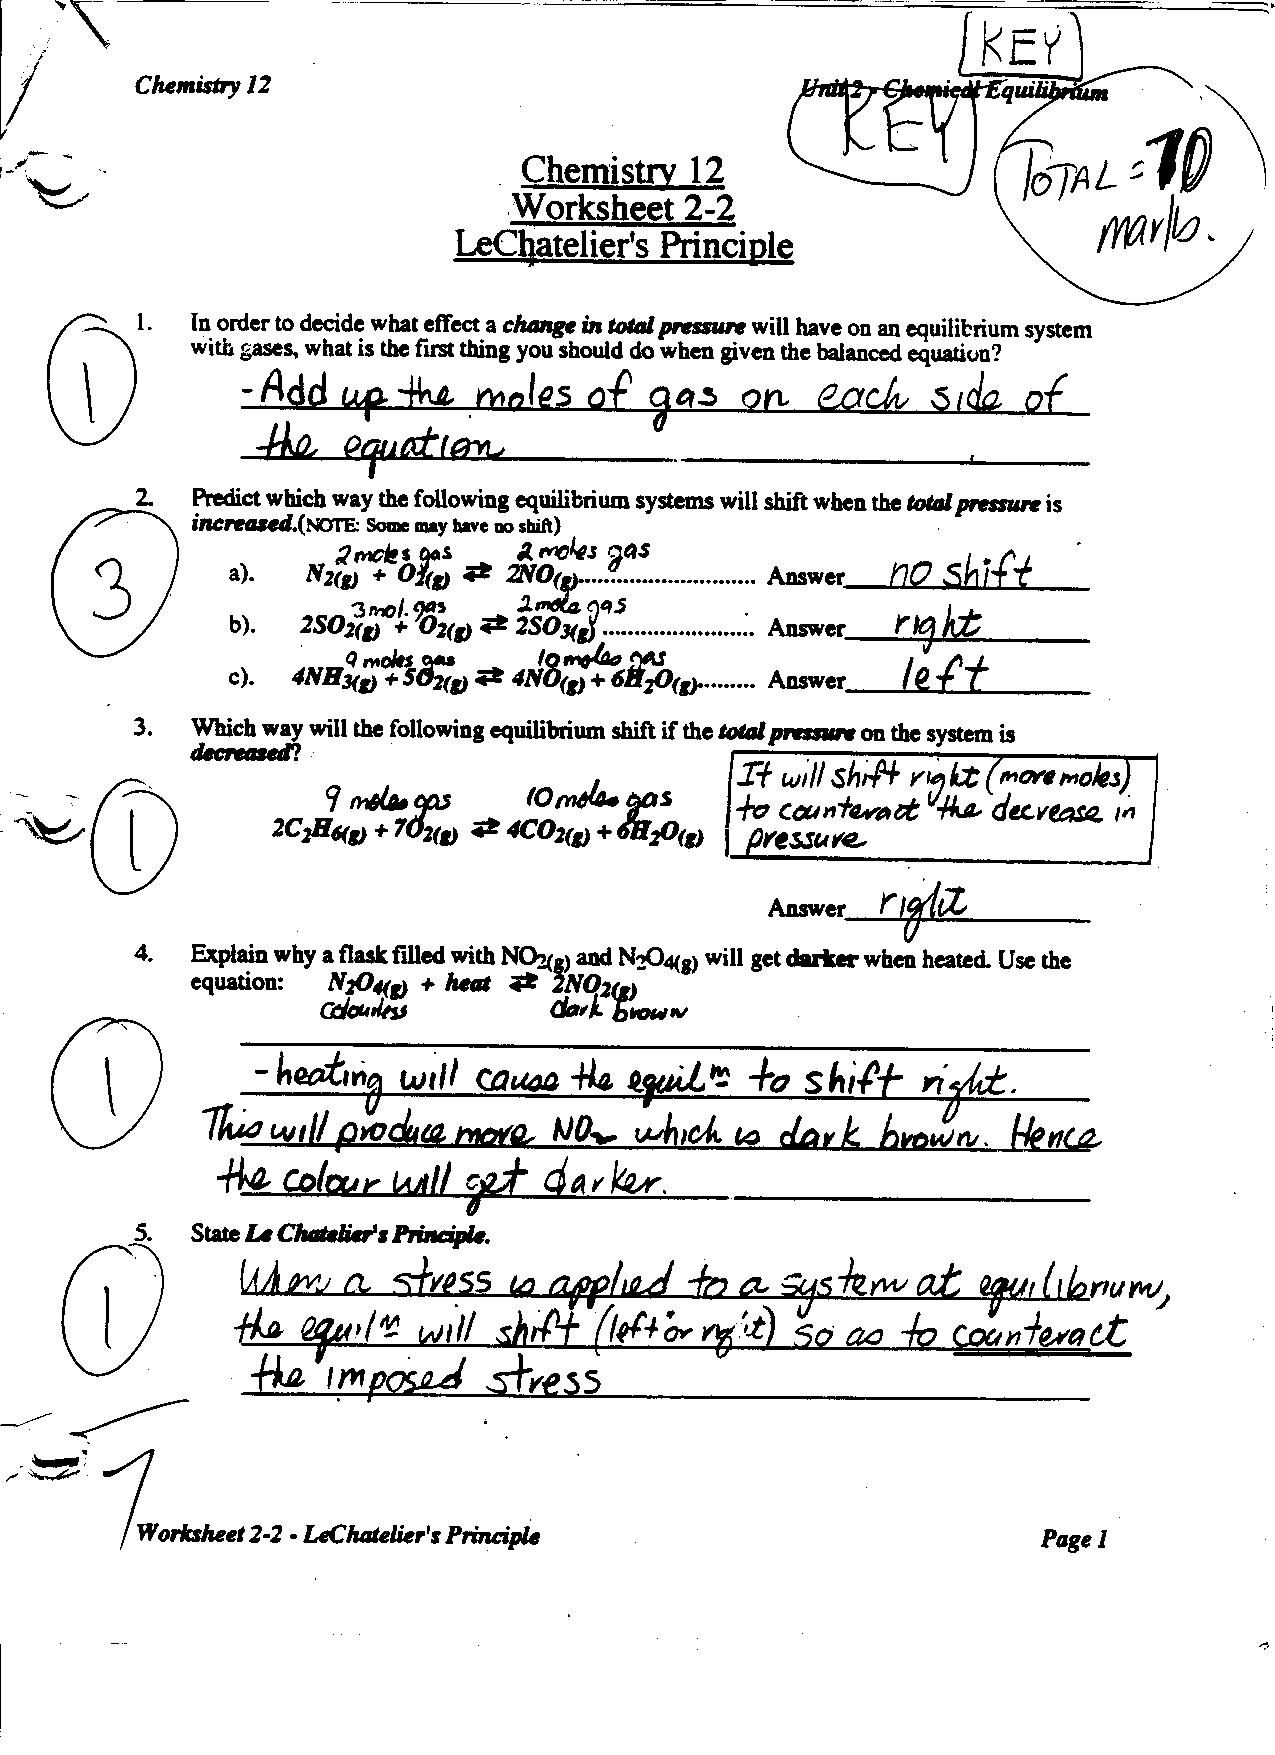 KEY
Chemistry 12
Unit 2 - Chemical Equilibrium
KEY
TOTAL = 70
marks.
Chemistry 12
Worksheet 2-2
LeChatelier's Principle
1
1. In order to decide what effect a change in total pressure will have on an equilibrium system
with gases, what is the first thing you should do when given the balanced equation?
- Add up the moles of gas on each side of
the equation
3
2. Predict which way the following equilibrium systems will shift when the total pressure is
increased.(NOTE: Some may have no shift)
2 moles gas 2 moles gas
a). N2(g) + O2(g) ⇄ 2NO(g)............................ Answer no shift
3 mol. gas 2 mole gas
b). 2SO2(g) + O2(g) ⇄ 2SO3(g) ........................ Answer right
9 moles gas 10 moles gas
c). 4NH3(g) + 5O2(g) ⇄ 4NO(g) + 6H2O(g)......... Answer left
3. Which way will the following equilibrium shift if the total pressure on the system is
decreased?
It will shift right (more moles)
to counteract the decrease in
pressure
9 moles gas 10 moles gas
1
2C2H6(g) + 7O2(g) ⇄ 4CO2(g) + 6H2O(g)
Answer right
4. Explain why a flask filled with NO2(g) and N2O4(g) will get darker when heated. Use the
equation: N2O4(g) + heat ⇄ 2NO2(g)
Colourless dark brown
1
- heating will cause the equilm to shift right.
This will produce more NO2 which is dark brown. Hence
the colour will get darker.
5. State Le Chatelier's Principle.
1
When a stress is applied to a system at equilibrium,
the equilm will shift (left or right) so as to counteract
the imposed stress
7
Worksheet 2-2 - LeChatelier's Principle Page 1